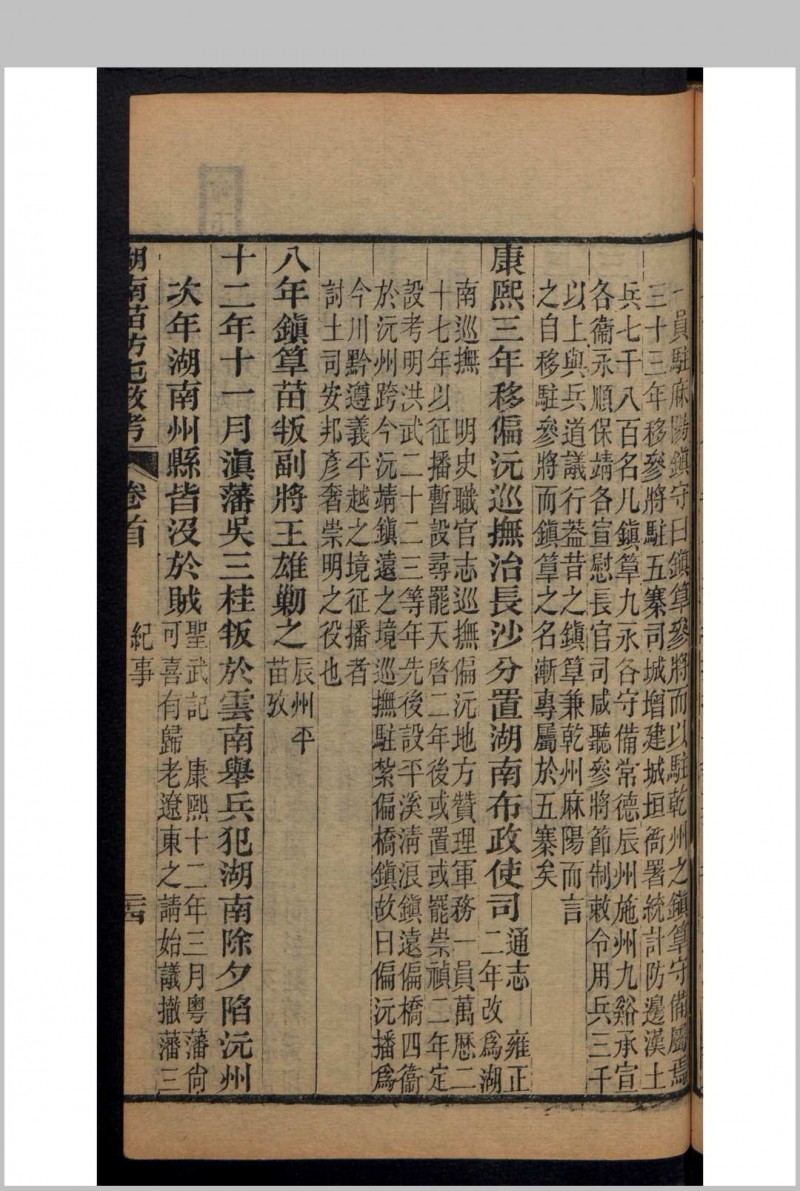 一員駐麻陽鎮守曰鎮筸參將而以駐乾州之鎮筸守備屬焉
三十三年移參將駐五寨司城增建城垣衙署統計防邊漢土
兵七千八百名凡鎮筸九永各守備常德辰州施州九谿承宣
各衞永順保靖各宣慰長官司咸聽參將節制敕令用兵三千
以上與兵道議行葢昔之鎮筸兼乾州麻陽而言
之自移駐參將而鎮筸之名漸專屬於五寨矣
康熙三年移偏沅巡撫治長沙分置湖南布政使司
通志 雍正
二年改爲湖
南巡撫 明史職官志巡撫偏沅地方贊理軍務一員萬歷二
十七年以征播暫設尋罷天啓二年後或置或罷崇禎二年定
設考明洪武二十二三等年先後設平溪淸浪鎮遠偏橋四衞
於沅州跨今沅靖鎮遠之境巡撫駐紮偏橋鎮故曰偏沅播爲
今川黔遵義平越之境征播者
討土司安邦彥奢崇明之役也
八年鎮筸苗叛副將王雄勦之
辰州平
苗攷
十二年十一月滇藩吳三桂叛於雲南舉兵犯湖南除夕陷沅州
次年湖南州縣皆沒於賊
聖武記 康熙十二年三月粤藩尙
可喜有歸老遼東之請始議撤藩三
湖南苗防屯政考 卷首 紀事 二四